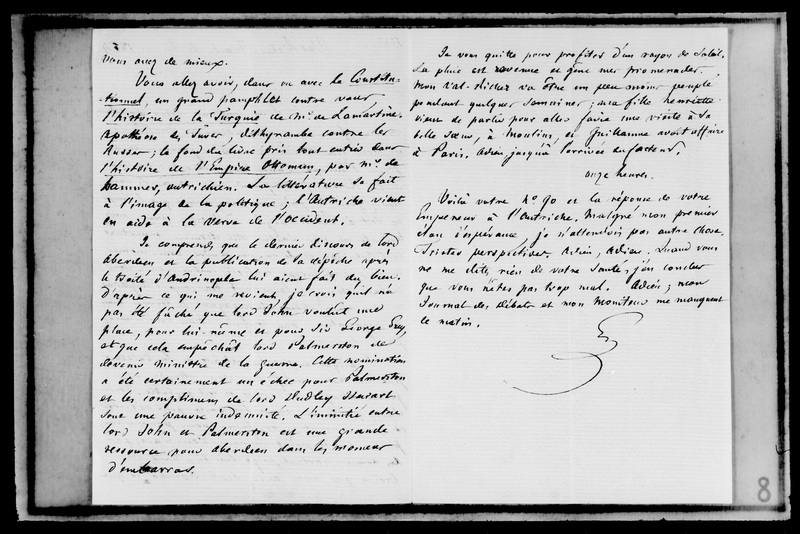 vous avez de mieux.
Vous allez avoir, dans ou avec le Constitu-
-tionnel, un grand pamphlet contre vous
l'histoire de la Turquie de Mr de Lamartine.
apothéose des Turcs, dithyrambe contre les
Russes; le fond du livre pris tout entier dans
l'histoire de l'Empire Ottoman, par Mr de
hammer, autrichien. La littérature se fait
à l'image de la politique; l'Autriche vient
en aide à la verve de l'occident.
Je comprends que le dernier discours de lord
aberdeen et la publication de la dépêche après
le traité d'Andrinople lui aient fait du bien.
D'après ce qui me revient, je crois qu'il n'a
pas été fâché que lord John voulût une
place, pour lui-même et pour Sir George Grey,
et que cela empêchât lord Palmerston de
devenir ministre de la guerre. Cette nomination
a été certainement un échec pour Palmerston
et les compliments de lord Dudley Stuart
sont une pauvre indemnité. L'inimitié entre
lord John et Palmerston est une grande
ressource pour aberdeen dans les moments
d'embarras.
Je vous quitte pour profiter d'un rayon de soleil.
La pluie est revenue et gêne mes promenades.
Mon Val-Richer va être un peu moins peuplé
pendant quelques semaines; ma fille henriette
vient de partir pour aller faire une visite à sa
belle sœur, à Moulins, et Guillaume avait affaire
à Paris. Adieu jusqu'à l'arrivée du facteur.
onze heures.
Voilà votre No 90 et la réponse de votre
Empereur à l'Autriche. Malgré mon premier
élan d'espérance je n'attendois pas autre chose.
Tristes perspectives. Adieu, Adieu. Quand vous
ne me dites rien de votre santé, j'en conclus
que vous n'êtes pas trop mal. Adieu; mon
Journal des Débats et mon Moniteur me manquent
ce matin.
G
8